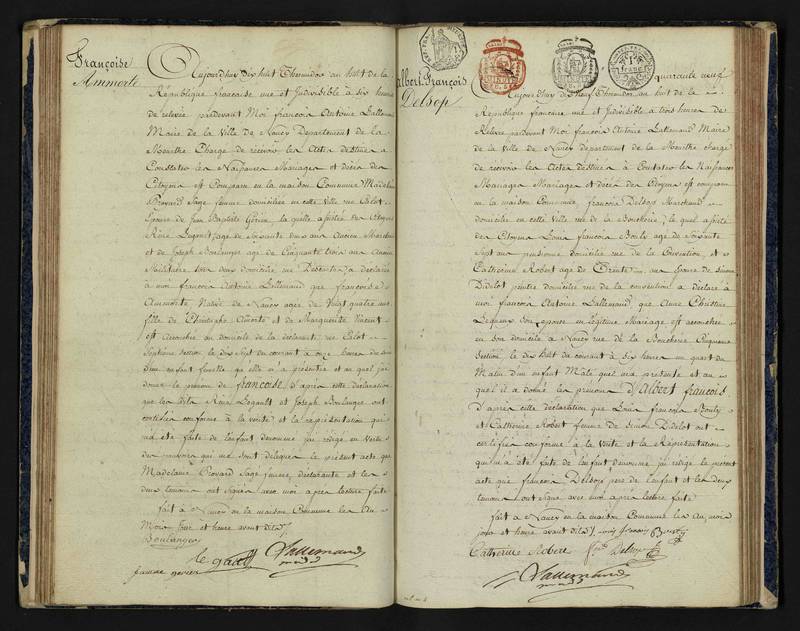 Françoise
Ammorte
Aujourd'huy Dix huit Thermidor an huit de la
République française une et Indivisible à six heures
de relevée pardevant Moi françois Antoine Lallemand
Maire de la Ville de Nancy Departement de la
Meurthe Chargé de recevoir les Actes destinés à
Constater les Naissances Mariages et décès des
Citoyens est Comparu en la maison Commune Madelaine
Provard Sage femme domiciliée en cette Ville rue Calot
Epouse de Jean Baptiste la quelle assistée des Citoyens
René Legault agé de soixante dix ans Ancien Marchand
et de Joseph Boulanger agé de Cinquante trois ans Ancien
Militaire tous deux domiciliés rue a déclaré
à moi françois Antoine Lallemand que françoise
Ammorte Native de Nancy agée de Vingt quatre ans
fille de Christophe Amorte et de Marguerite Vincent
est accouchée au domicile de la déclarante rue Calot
Septieme Section le dix Sept du courant à onze heures du
enfant femelle qu'elle m'a présentée et au quel j'ai
donné le prénom de françoise d'après cette déclaration
que les dits René Legault et Joseph Boulanger ont
certifiée conforme à la vérité et la représentation qui
m'a été faite de l'enfant dénommé j'ai rédigé en Vertu
des pouvoirs qui me sont délégués le présent acte que
Madelaine Provard Sage femme, déclarante et les
deux temoins ont signés avec moi après lecture faite
fait à Nancy en la maison Commune les An
Mois Jour et heure avant dits
Boulanger
le gault Lallemand
femme
albert François
Delsop
quarante neuf
Aujourd'huy Dix neuf Thermidor an huit de la
République française une et Indivisible à trois heures de
Relevée pardevant Moi françois Antoine Lallemand Maire
de la Ville de Nancy departement de la Meurthe chargé
de recevoir les Actes destinés à Constater les Naissances
Mariages et décès des Citoyens est comparu
en la maison Commune, françois Delsop Marchand
domicilié en cette Ville rue de la Boucherie, le quel assisté
des Citoyens Louis françois Bouly agé de Soixante
Sept ans pensionné domicilié rue de la Convention et
Catherine Robert agée de Trente un ans femme de Simon
Didelot peintre domiciliée rue de la convention a déclaré à
moi françois Antoine Lallemand que Anne Christine
son épouse en légitime Mariage est accouchée
en son domicile à Nancy rue de la Boucherie Cinquieme
Section, le dix huit du courant à six heures un quart du
Matin d'un enfant Male quel m'a présenté et au
quel il a donné les prénoms D'albert françois
d'après cette déclaration que Louis françois Bouly
et Catherine Robert femme de Simon Didelot ont
certifiée conforme à la Vérité et la Représentation
qui m'a été faite de l'enfant dénommé j'ai rédigé le présent
acte que françois Delsop pere de l'enfant et les deux
temoins ont signé avec moi après lecture faite
fait à Nancy en la maison Commune les An, mois
jour et heure avant dits
Catherine Robert Delsop
Lallemand